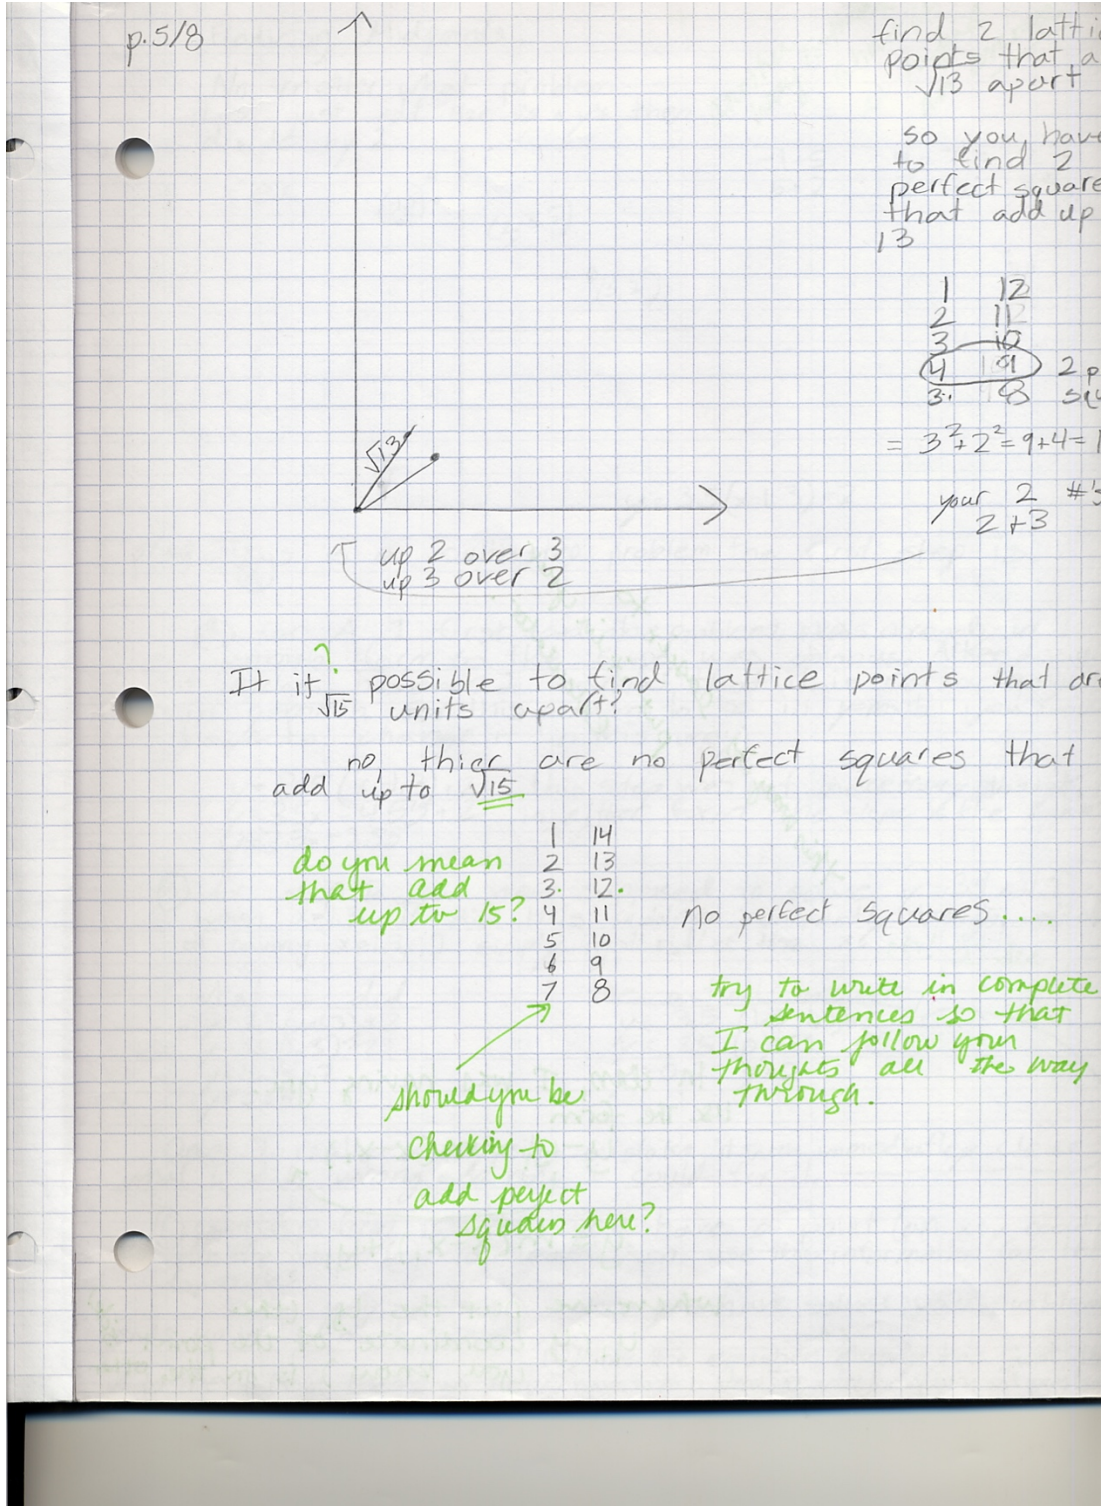 p.5/8
find 2 latti
points that a
√13 apart
so you have
to find 2
perfect square
that add up
13
1 12
2 11
3 10
4 9 2 p
3. 8 squ
= 3²+2²=9+4=1
your 2 #'s
2+3
√13
up 2 over 3
up 3 over 2
?
It it √15 possible to find lattice points that are
units apart?
no, thier are no perfect squares that
add up to √15
1 14
do you mean 2 13
that add 3. 12.
up to 15? 4 11 no perfect squares....
5 10
6 9
7 8
try to write in complete
sentences so that
I can follow your
thoughts all the way
through.
should you be
checking to
add perfect
squares here?